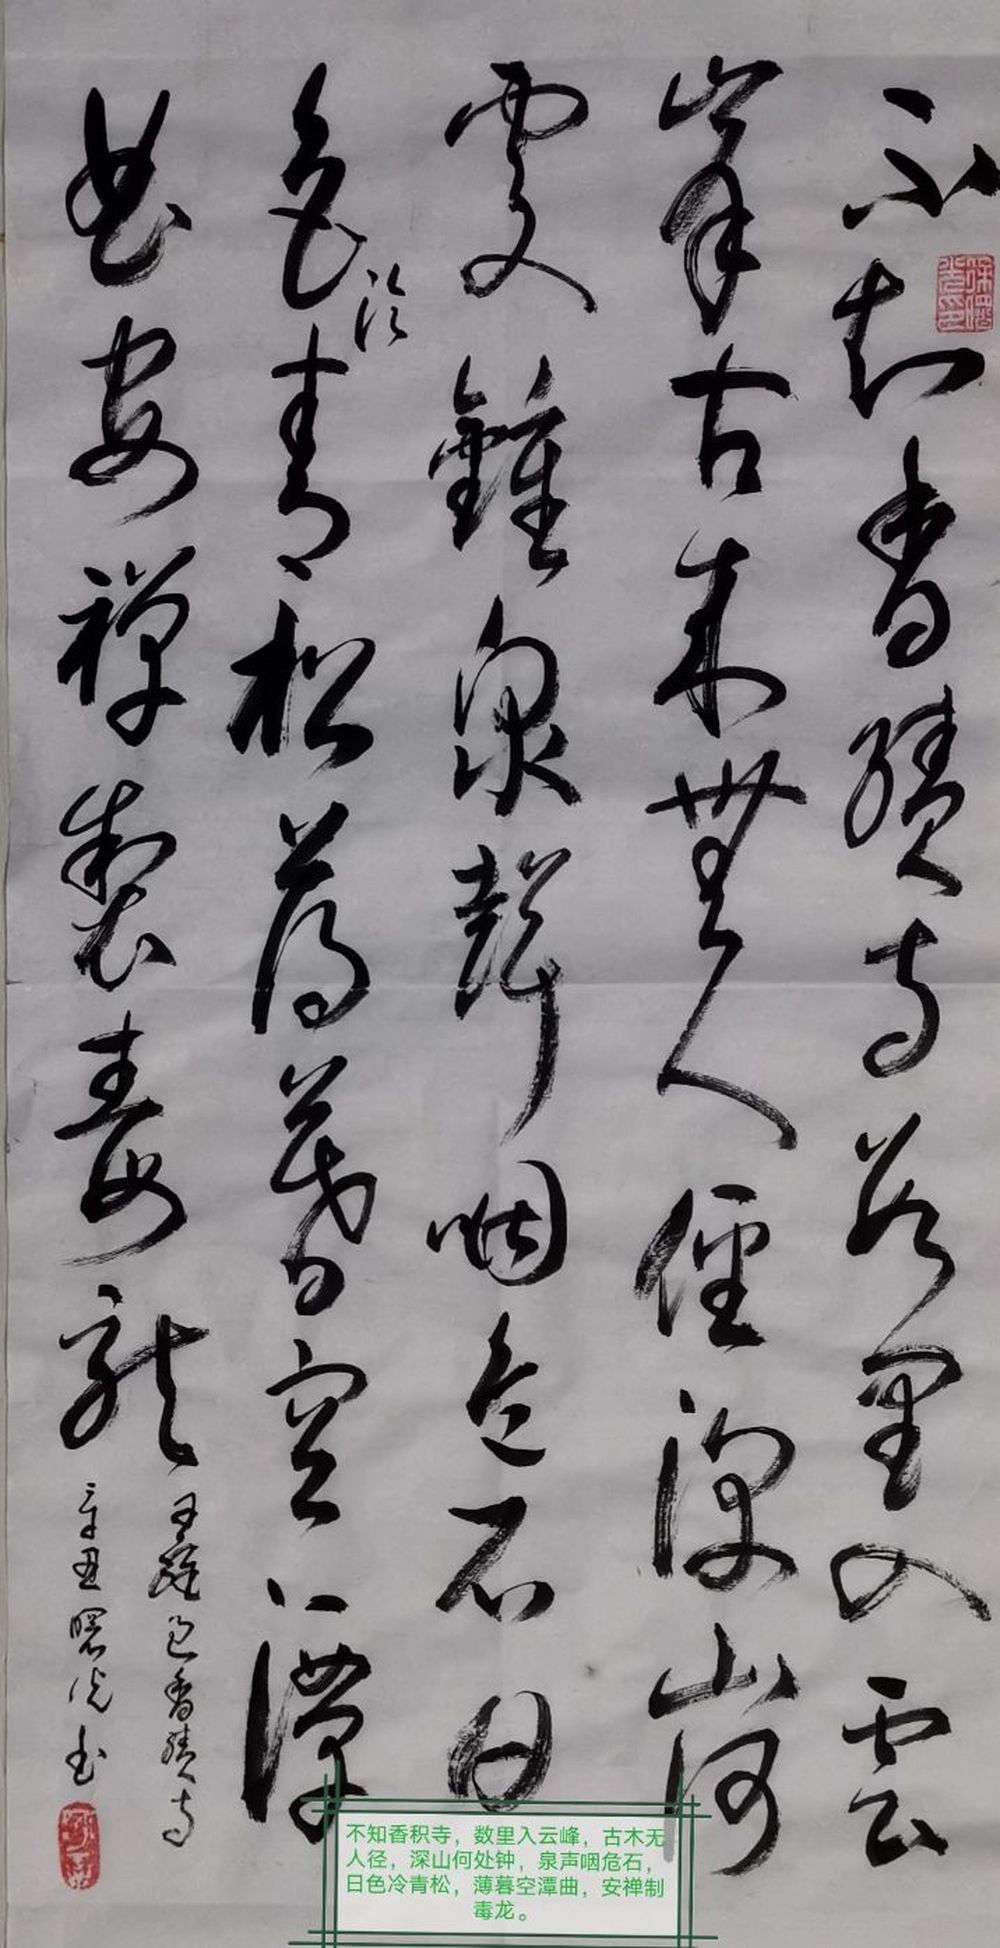 不知香積寺數里入雲
峯古木無人徑深山何
處鐘泉聲咽危石日
色青松薄暮空潭
冷
曲安禪製毒龍
王維過香積寺
辛丑曙光书
不知香积寺，数里入云峰，古木无
人径，深山何处钟，泉声咽危石，
日色冷青松，薄暮空潭曲，安禅制
毒龙。